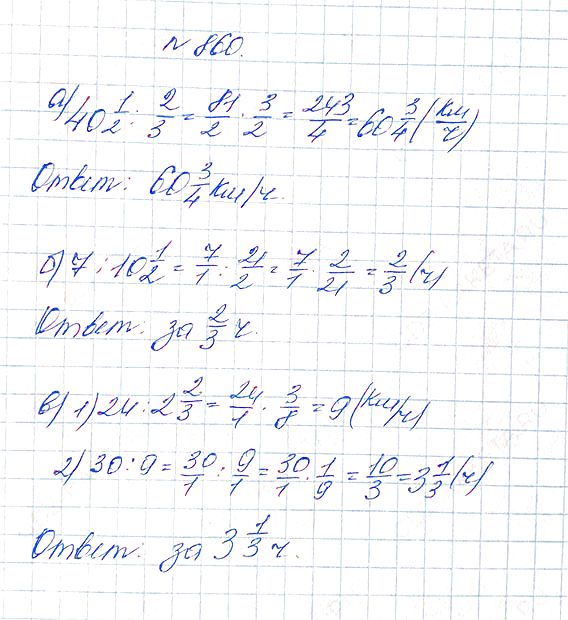 № 860.
а) 40 1/2 : 2/3 = 81/2 · 3/2 = 243/4 = 60 3/4 (км/ч)
Ответ: 60 3/4 км/ч.
б) 7 : 10 1/2 = 7/1 : 21/2 = 7/1 · 2/21 = 2/3 (ч)
Ответ: за 2/3 ч.
в) 1) 24 : 2 2/3 = 24/1 · 3/8 = 9 (км/ч)
2) 30 : 9 = 30/1 : 9/1 = 30/1 · 1/9 = 10/3 = 3 1/3 (ч)
Ответ: за 3 1/3 ч.